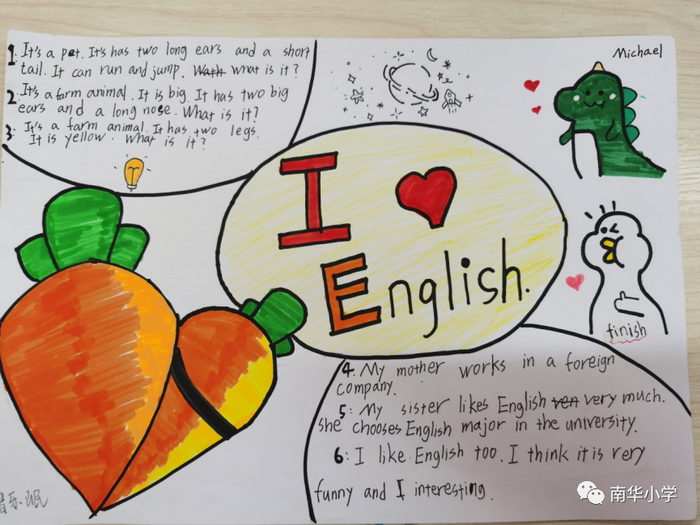 1. It's a pet. It's has two long ears and a short
tail. It can run and jump. Wath what is it?
2. It's a farm animal. It is big. It has two big
ears and a long nose. What is it?
3: It's a farm animal. It has two legs.
It is yellow. What is it?
Michael
I
English.
finish
4. My mother works in a foreign
company.
5: My sister likes English ven very much.
she chooses English major in the university.
6: I like English too. I think it is very
funny and I interesting.
南华小学